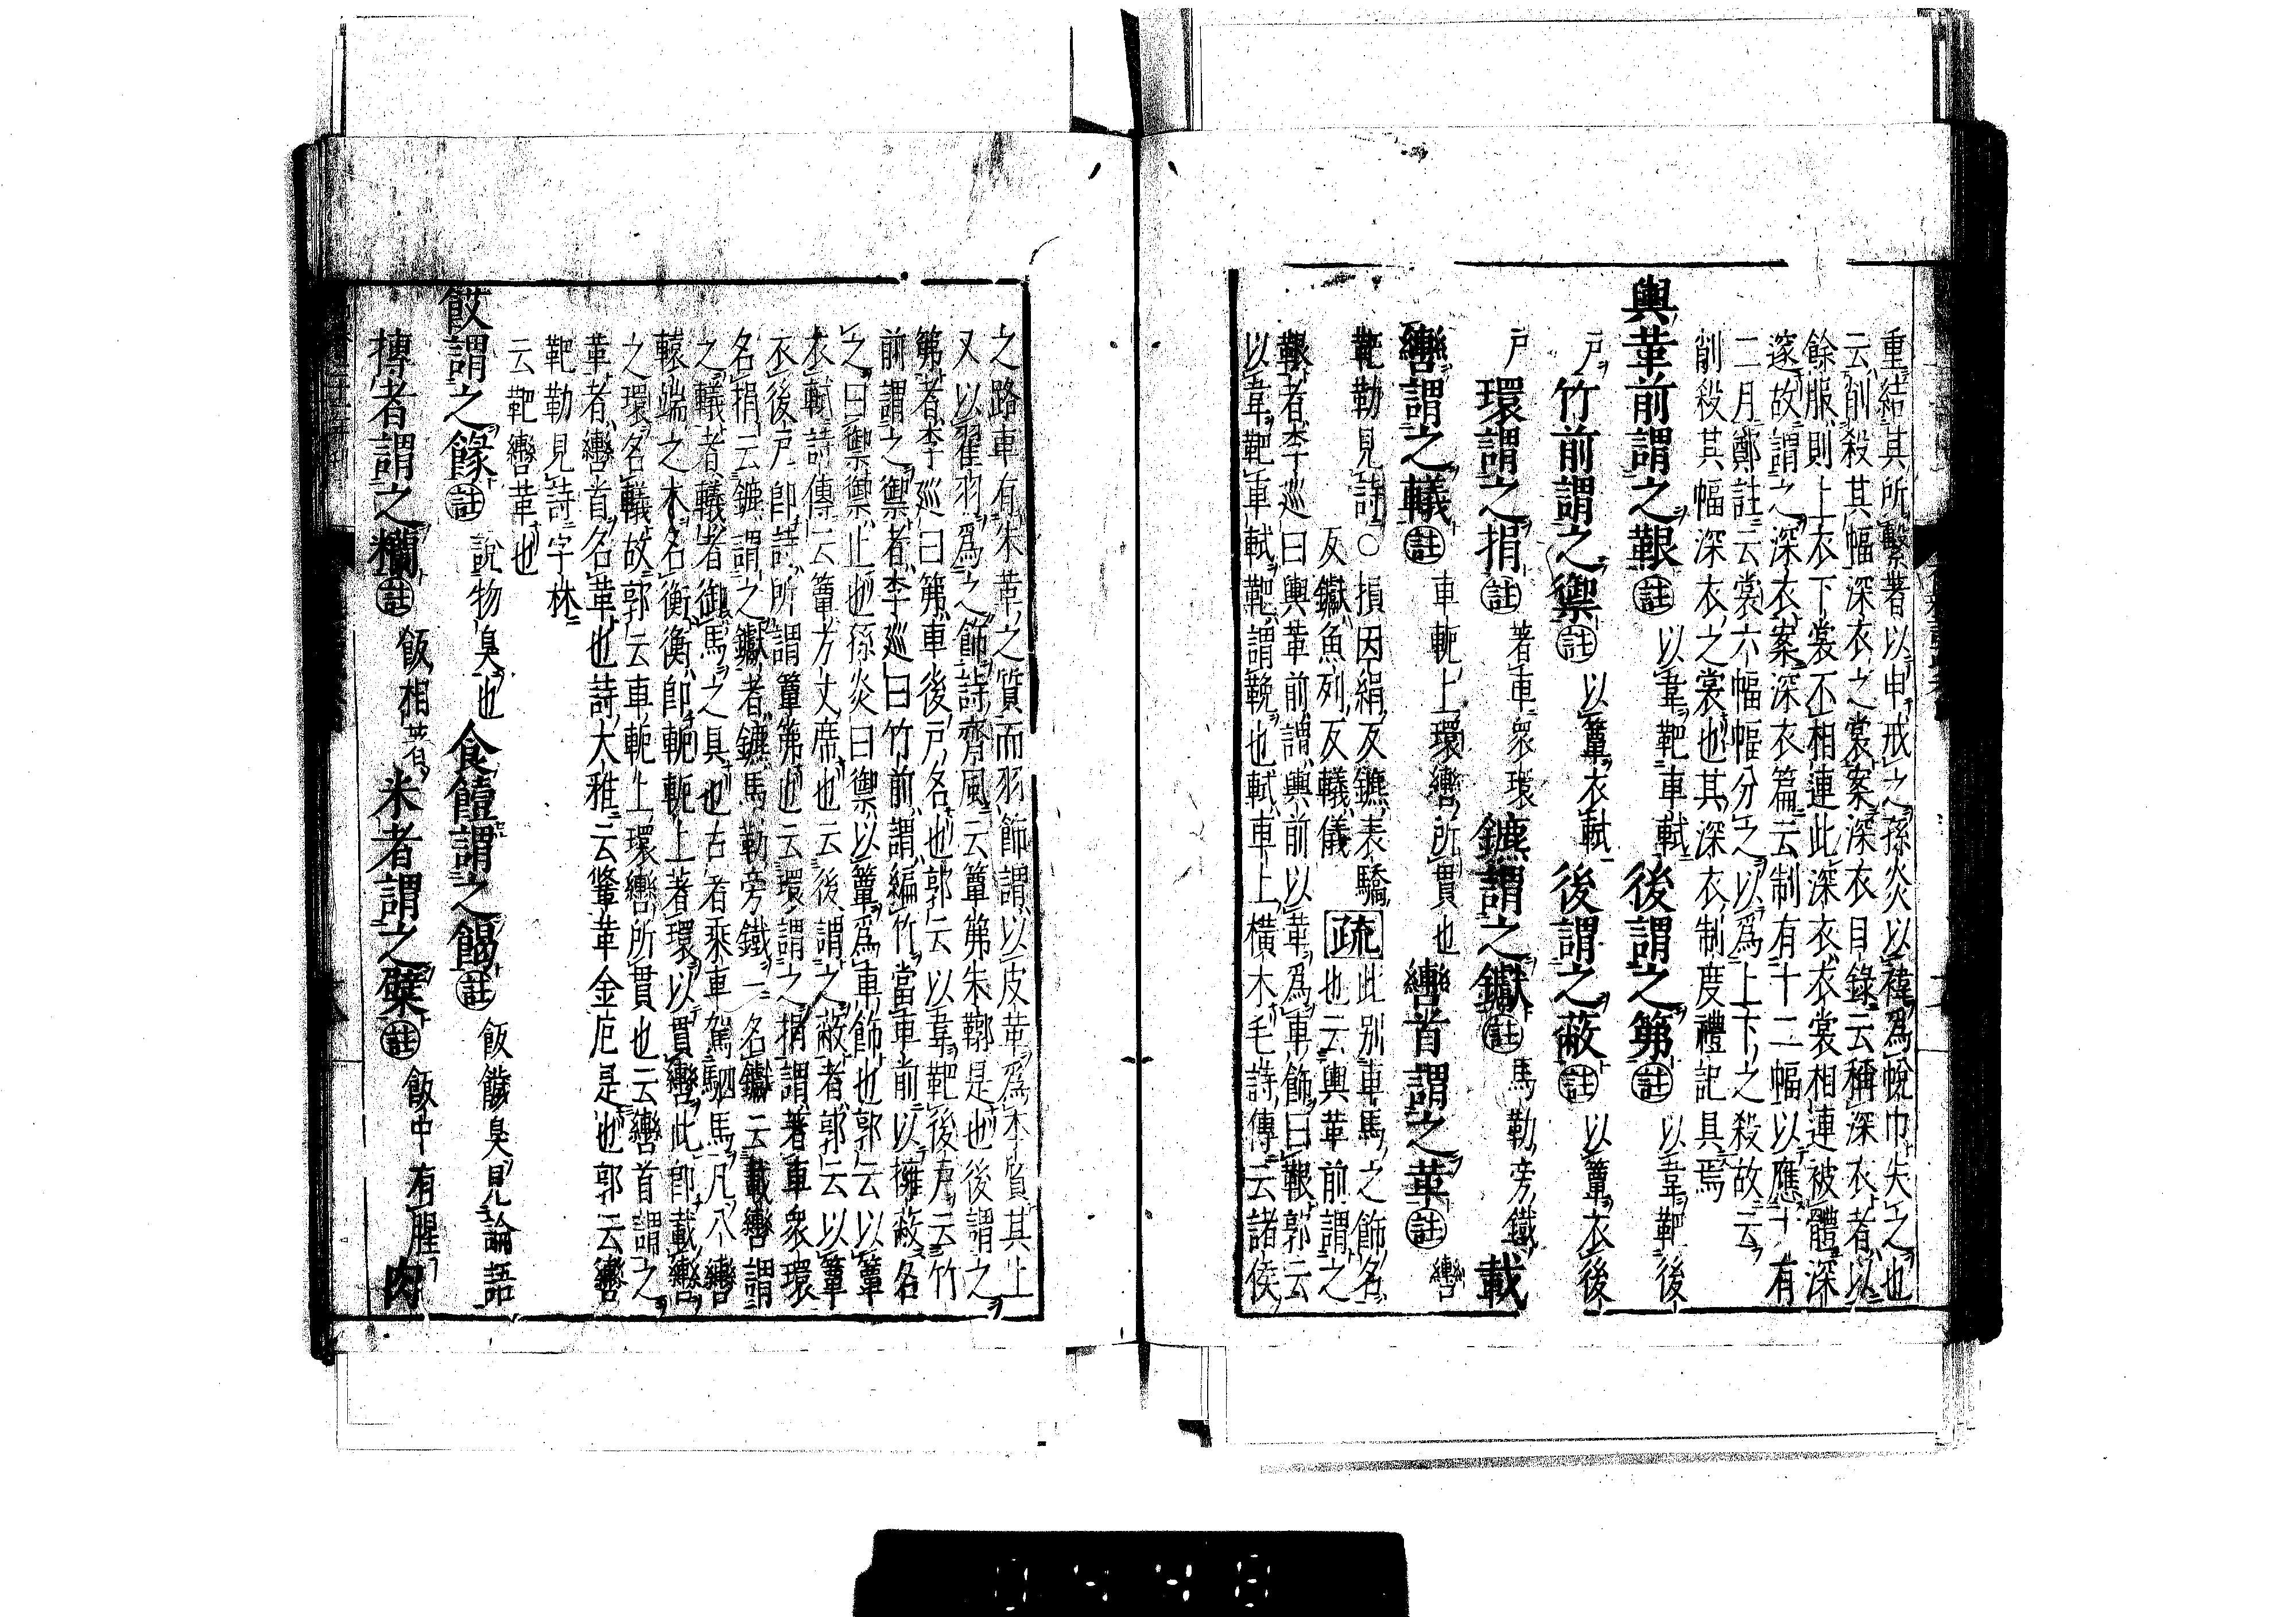 重結其所繫著以申戒之孫炎以褘爲帨巾失之也
云削殺其幅深衣之裳案深衣目錄云稱深衣者以
餘服則上衣下裳不相連此深衣衣裳相連被體深
邃故謂之深衣案深衣篇云制有十二幅以應十有
二月鄭註云裳六幅幅分之以爲上下之殺故云
削殺其幅深衣之裳也其深衣制度禮記具焉
輿革前謂之鞎註以韋靶車軾後謂之笰註以韋靶後
戶竹前謂之禦註以簟衣軾後謂之蔽註以簟衣後
戶環謂之捐註著車衆環鑣謂之钀註馬勒旁鐵載
轡謂之轙註車軶上環轡所貫也轡首謂之革註轡
靶勒見詩○捐因絹反鑣表驕
反钀魚列反轙儀
疏此別車馬之飾名
也云輿革前謂之
鞎者李巡曰輿革前謂輿前以革爲車飾曰鞎郭云
以韋靶車軾靶謂鞔也軾車上橫木毛詩傳云諸侯
之路車有朱革之質而羽飾謂以皮革爲本質其上
又以翟羽爲之飾詩齊風云簟笰朱鞹是也後謂之
笰者李巡曰笰車後戶名也郭云以韋靶後戶云竹
前謂之禦者李巡曰竹前謂編竹當車前以擁蔽名
之曰禦禦止也孫炎曰禦以簟爲車飾也郭云以簟
衣軾詩傳云簟方文席也云後謂之蔽者郭云以簟
衣後戶卽詩所謂簟笰也云環謂之捐謂著車衆環
名捐云鑣謂之钀者鑣馬勒旁鐵一名钀云載轡謂
之轙者轙者御馬之具也古者乘車駕駟馬凡八轡
轅端之木名衡衡卽軶軶上著環以貫轡此卽載轡
之環名轙故郭云車軶上環轡所貫也云轡首謂之
革者轡首名革也詩大雅云鞗革金厄是也郭云轡
靶勒見詩字林
云靶轡革也
餀謂之餯註說物臭也食饐謂之餲註飯饖臭見論語
摶者謂之糷註飯相著米者謂之糪註飯中有腥肉